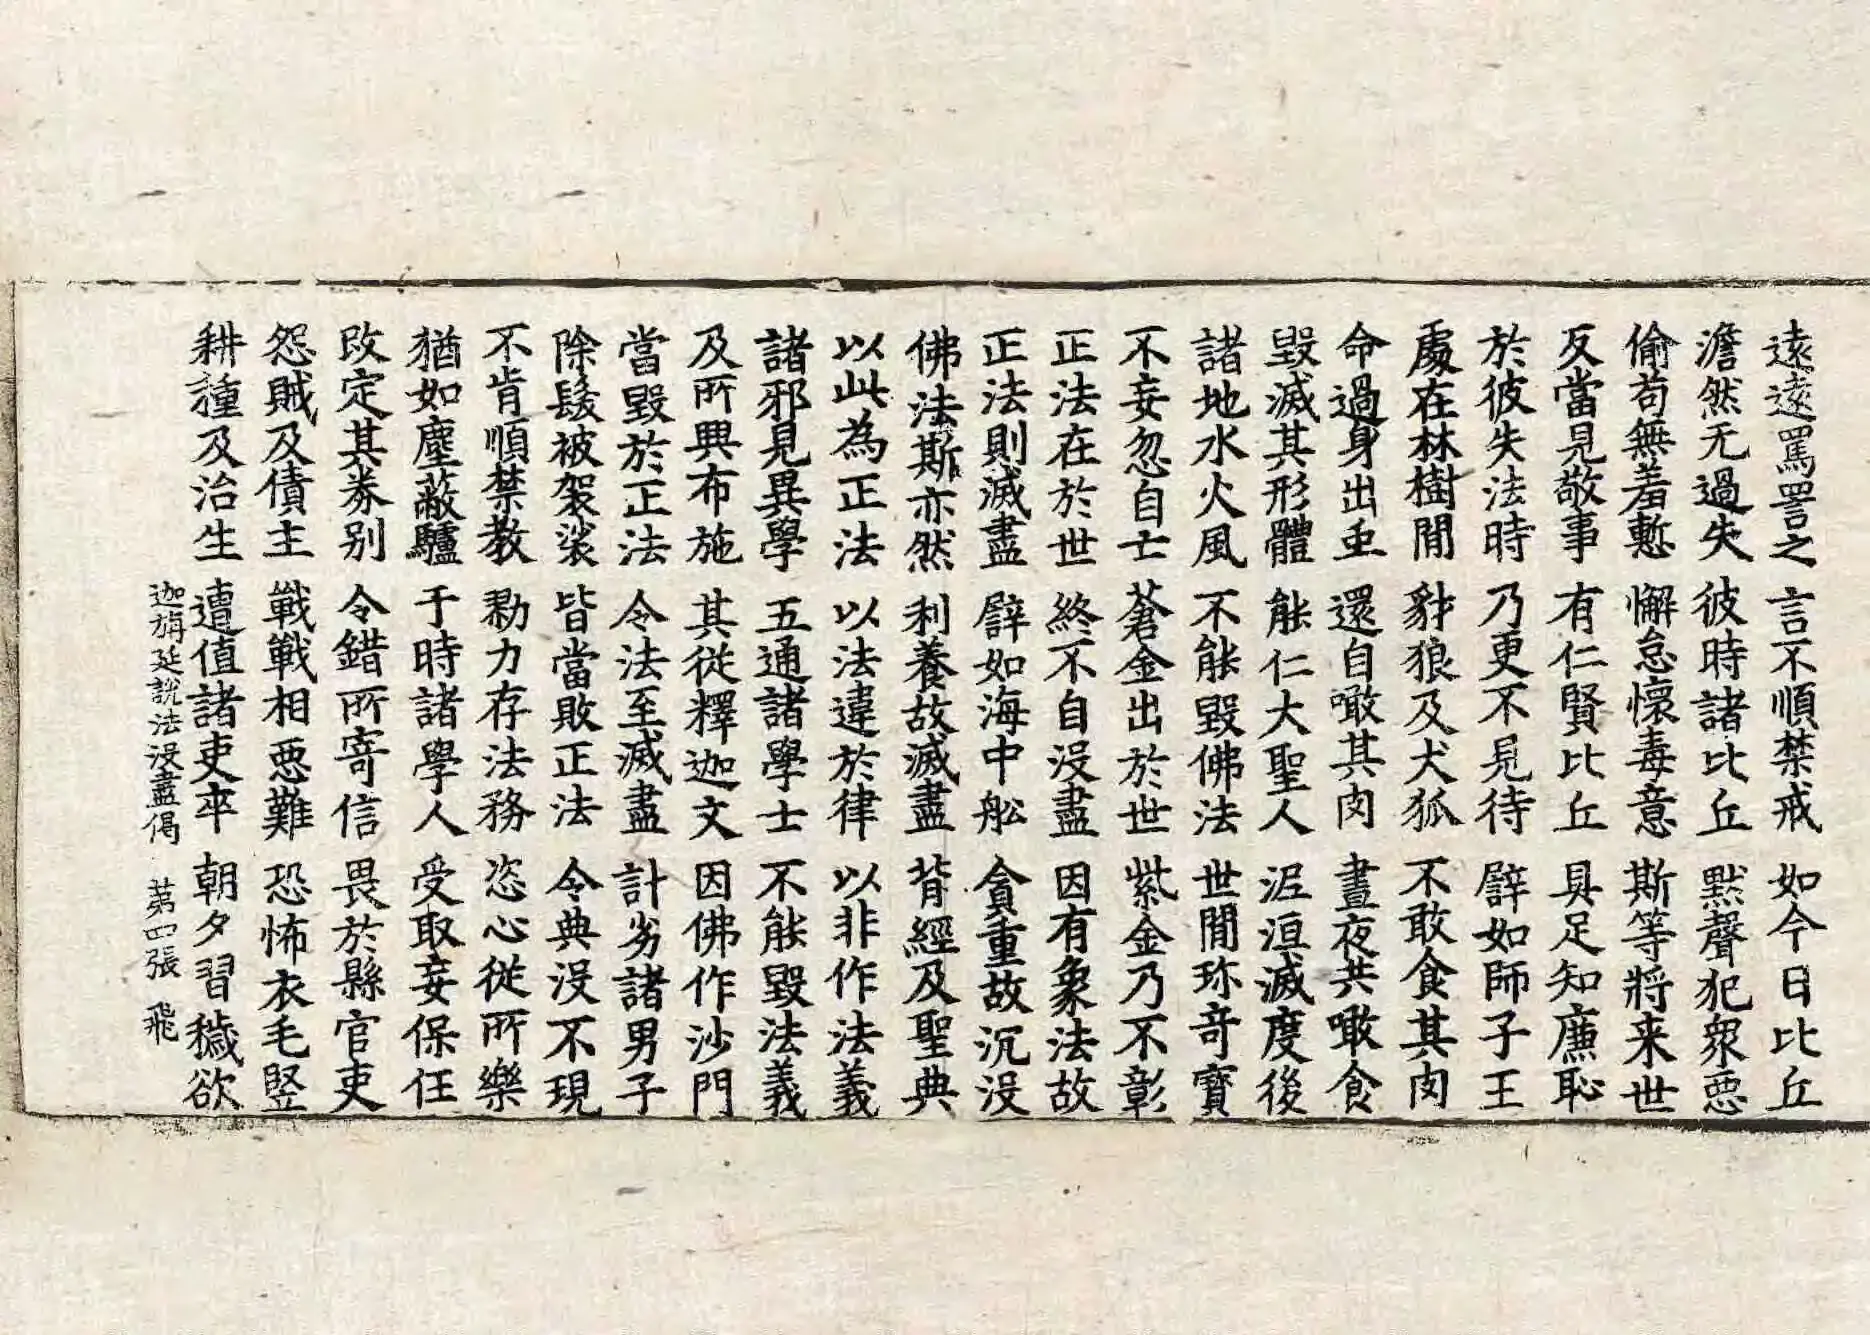 遠遠罵詈之 言不順禁戒 如今日比丘
澹然无過失 彼時諸比丘 黙聲犯衆惡
偷苟無羞慙 懈怠懷毒意 斯等將来世
反當見敬事 有仁賢比丘 具足知廉恥
於彼失法時 乃更不見待 譬如師子王
處在林樹閒 豺狼及犬狐 不敢食其肉
命過身出虫 還自噉其肉 晝夜共噉食
毀滅其形體 能仁大聖人 泥洹滅度後
諸地水火風 不能毀佛法 世閒珎竒寶
不妄忽自亡 蒼金出於世 紫金乃不彰
正法在於世 終不自没盡 因有象法故
正法則滅盡 譬如海中舩 貪重故沉没
佛法斯亦然 利養故滅盡 背經及聖典
以此為正法 以法違於律 以非作法義
諸邪見異學 五通諸學士 不能毀法義
及所興布施 其從釋迦文 因佛作沙門
當毀於正法 令法至滅盡 計劣諸男子
除髮被袈裟 皆當敗正法 令典没不現
不肯順禁教 勠力存法務 恣心從所樂
猶如塵蔽驢 于時諸學人 受取妄保任
改定其券别 令錯所寄信 畏於縣官吏
怨賊及債主 戰戰相惡難 恐怖衣毛竪
耕種及治生 遭值諸吏卒 朝夕習穢欲
迦旃延說法没盡偈 苐四張 飛